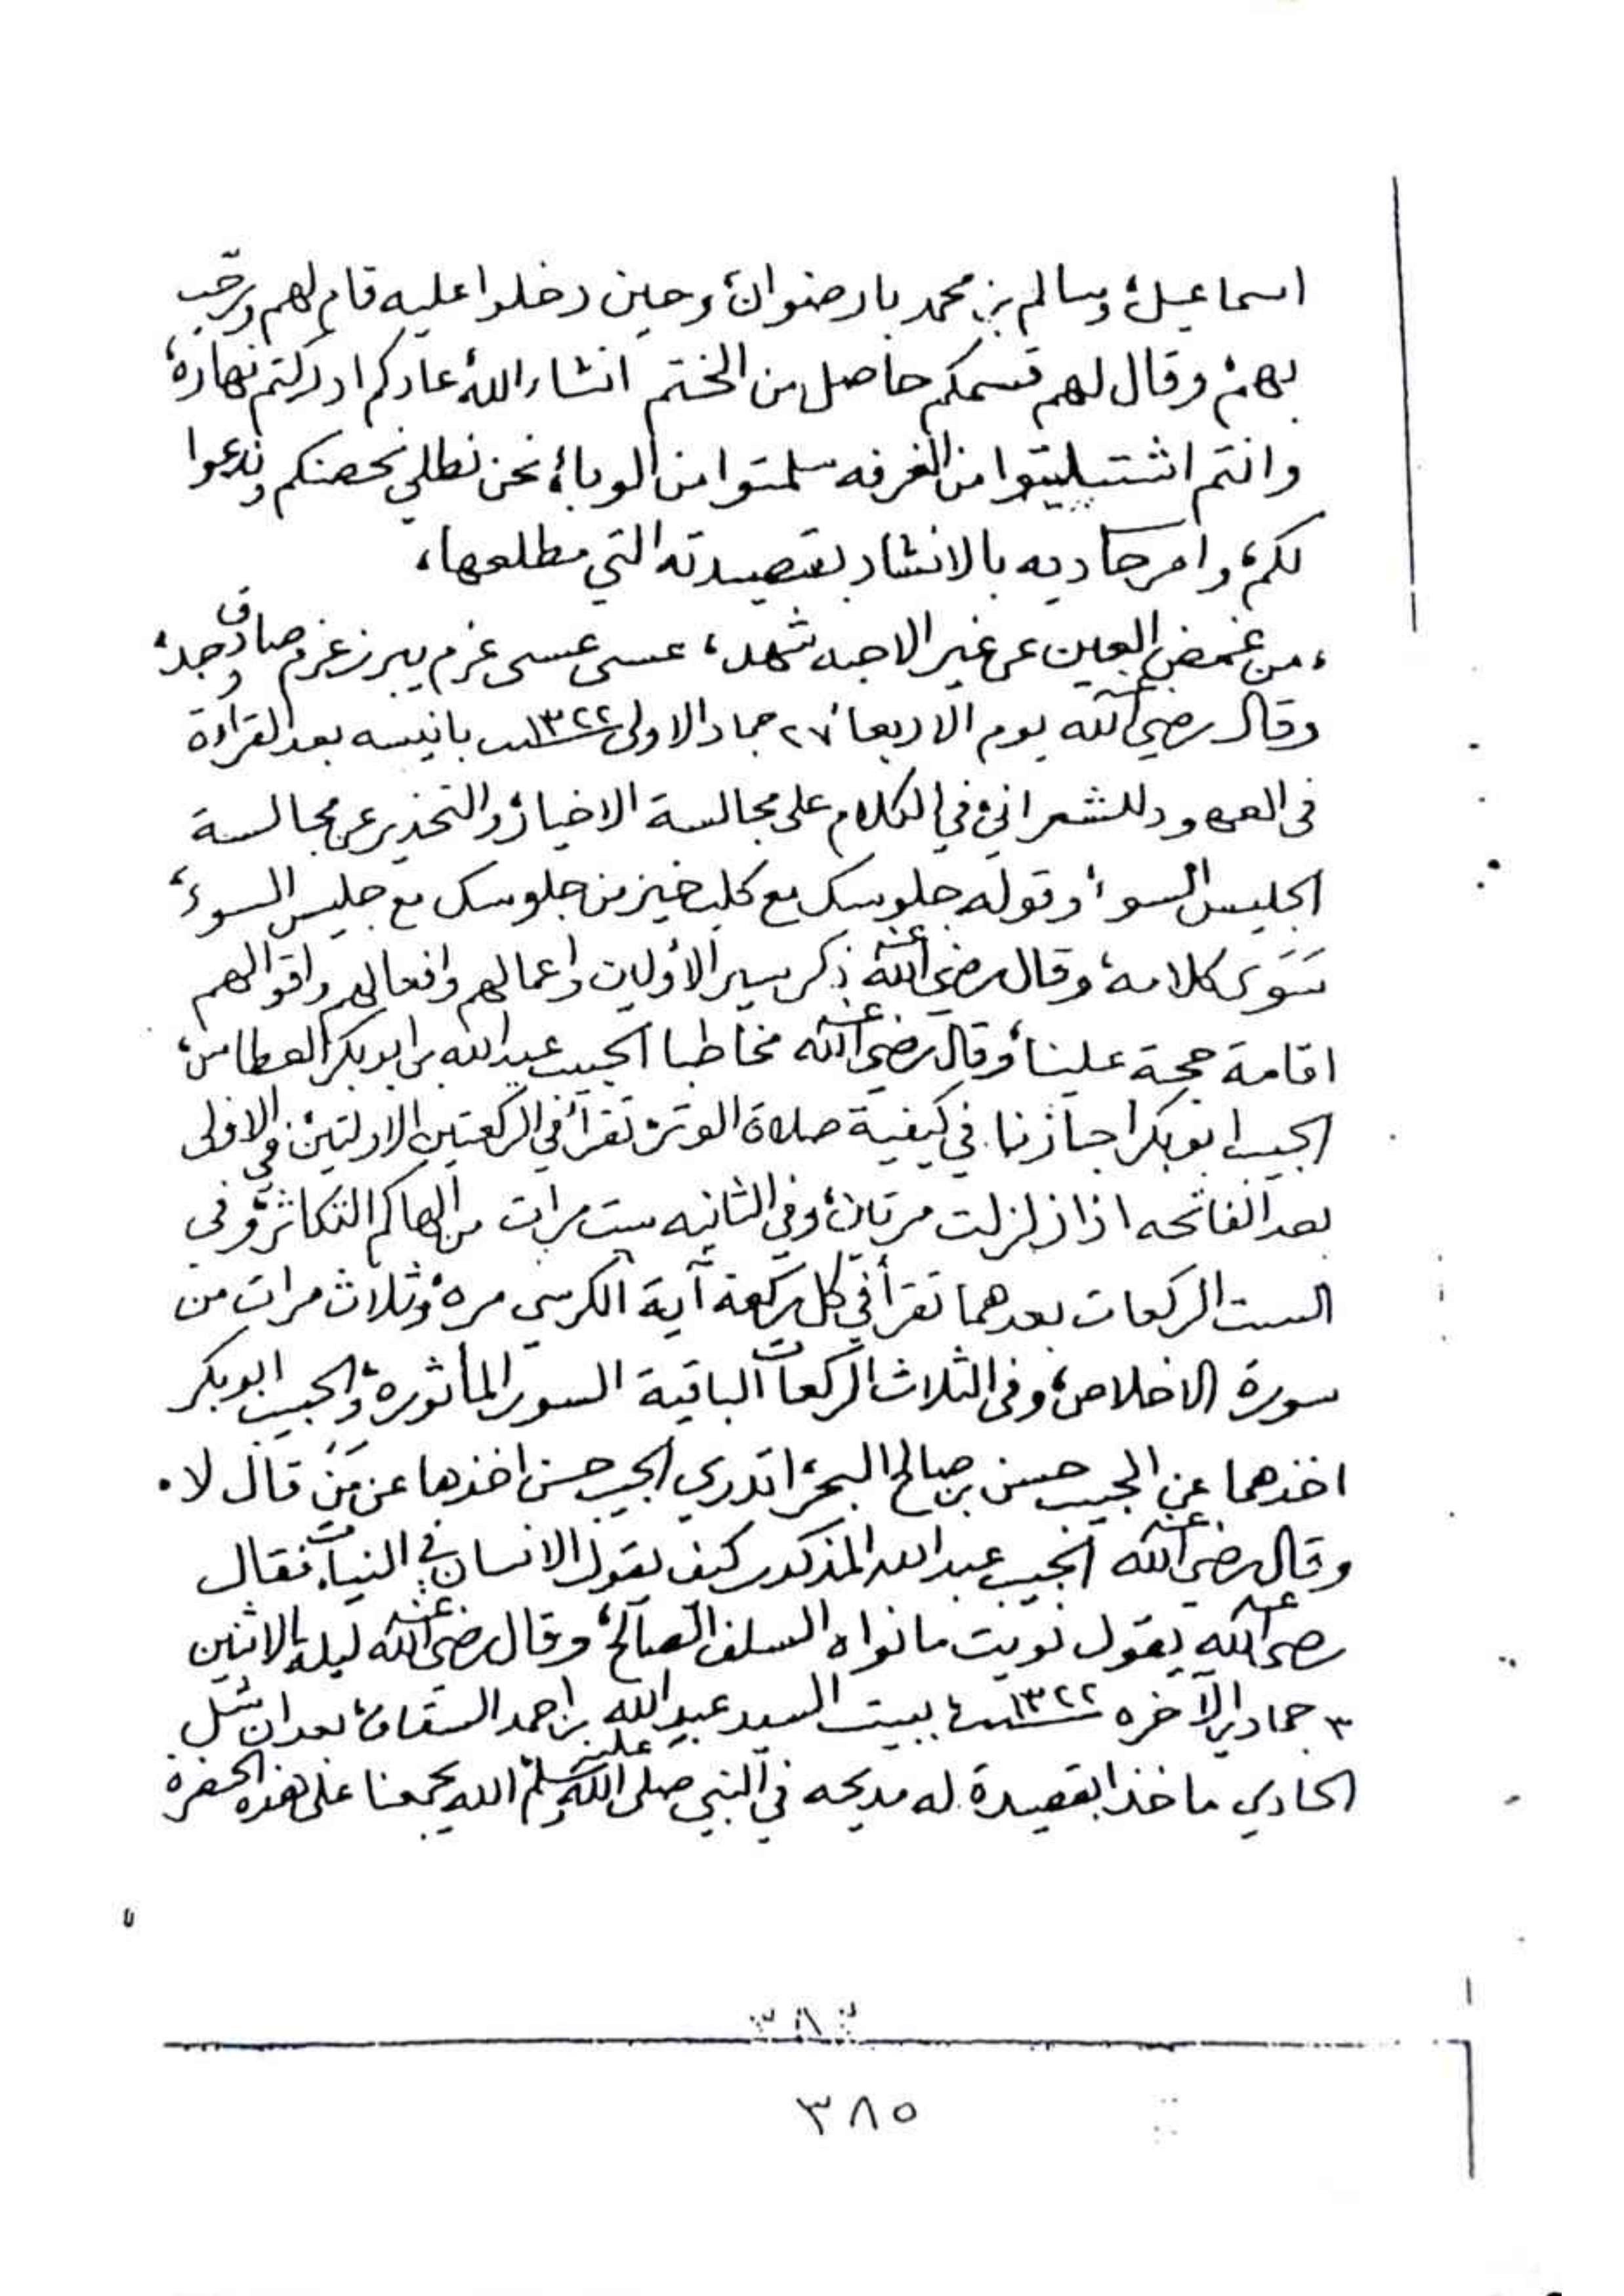 اسماعيل، وسالم بن محمد بارضوان، وحين دخلوا عليه قام لهم ورحّب
بهم، وقال لهم قسمكم حاصل من الختم انشاء الله، عادكم ادركتم نهاره،
وانتم اشتبليتوا من الغرفه سلمتوا من الوباء، نحن نطلي نحصنكم وندعوا
لكم، وامر حاديه بالانشاد بقصيدته التي مطلعها،
، من غمض العين عن غير الاحبه شهد، عسى عسى عزم يبرز عزم صادق وجد،
وقال رضي الله عنه يوم الاربعاء ٢٧ جماد الاولى سنة ١٣٢٢ بانيسه بعد القراءة
في العهود للشعراني، في الكلام على مجالسة الاخيار، والتحذير عن مجالسة
الجليس السوء، وقوله جلوسك مع كلب خير من جلوسك مع جليس السوء،
سَوَى كلامه، وقال رضي الله عنه ذكر سير الأولين واعمالهم وافعالهم واقوالهم
اقامة حجة علينا، وقال رضي الله عنه مخاطبا الحبيب عبدالله بن ابوبكر العطاس،
الحبيب ابوبكر اجازنا في كيفية صلاة الوتر، تقرأ في الركعتين الاولتين، في الاولى
بعد الفاتحه اذا زلزلت مرتان، وفي الثانيه ست مرات من الهاكم التكاثر، وفي
الست الركعات بعدهما تقرأ في كل ركعة آية الكرسي مره، وثلاث مرات من
سورة الاخلاص، وفي الثلاث الركعات الباقية السور المأثورة، والحبيب ابوبكر
اخذهما عن الحبيب حسن بن صالح البحر، اتدري الحبيب حسن اخذها عن مَنْ قال لا.
وقال رضي الله عنه الحبيب عبدالله المذكور كيف يقول الانسان في النيات، فقال
رضي الله عنه يقول نويت مانواه السلف الصالح، وقال رضي الله عنه ليلة الاثنين
٣ جمادي الآخره سنة ١٣٢٢ ببيت السيد عبدالله بن احمد السقاف، بعد ان شل
الحادي ماخذ بقصيدة له مديحه في النبي صلى الله عليه وسلم، الله يجمعنا على هذه الحضرة
٣٨٣
٣٨٥